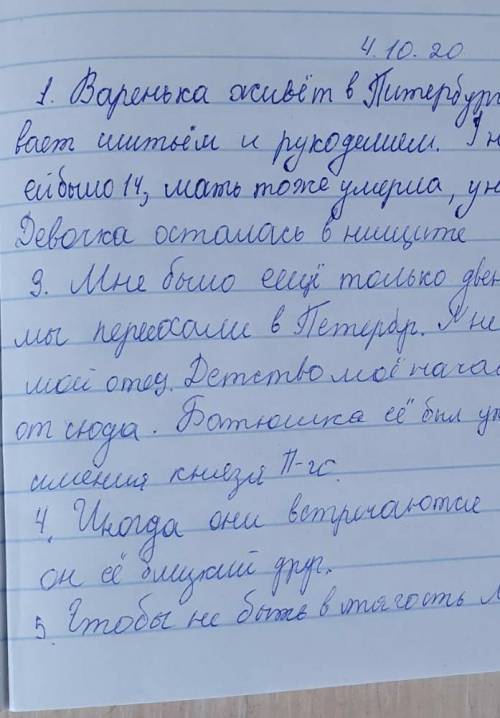 4.10.20
1. Варенька живёт в Питербург
вает шитьём и рукоделием.
ей было 14, мать тоже умерла, ун
Девочка осталась в нищите
3. Мне было ещё только двен
мы переехали в Петербр. Я не
мой отец. Детство моё начал
от сюда. Батюшка её был уп
имения князя П-го.
4. Иногда они встречаются
он её близкий друг.
5. Чтобы не быть в тягость